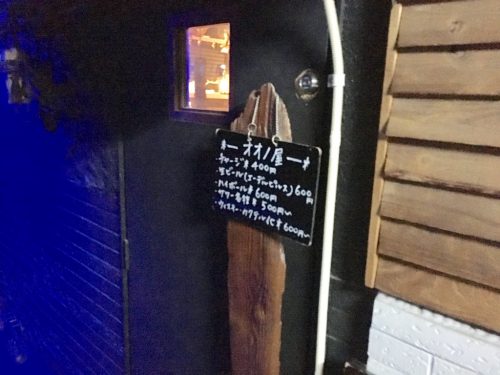 オオノ屋
・チャージ¥400円
・生ビール(エーデルピルス)600円
・ハイボール¥600円
・サワー各種¥500円〜
・ウィスキー・カクテルetc¥600円〜